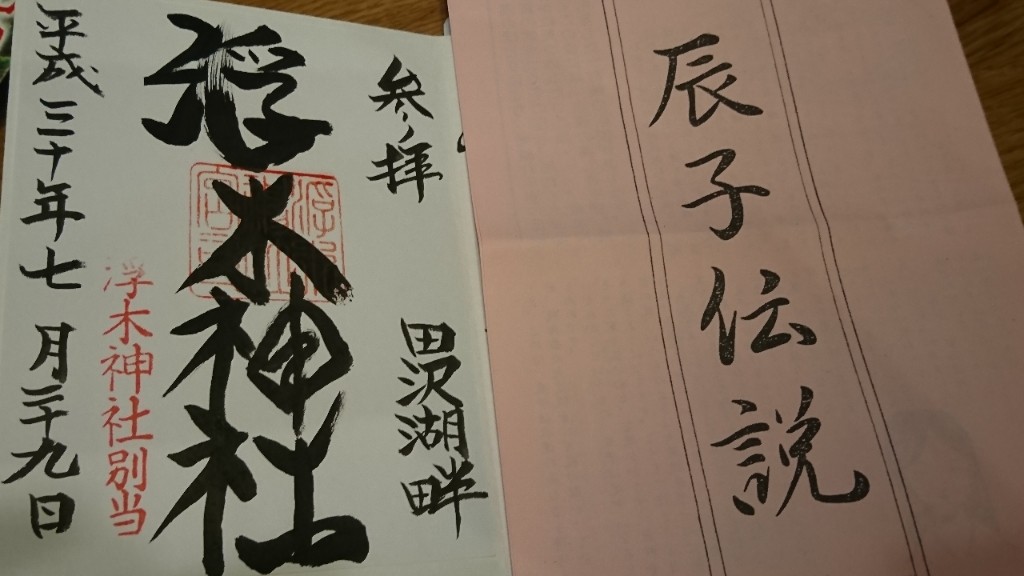 辰子伝説
参拝
田沢湖畔
浮木神社
浮木神社別当
平成三十年七月二十九日